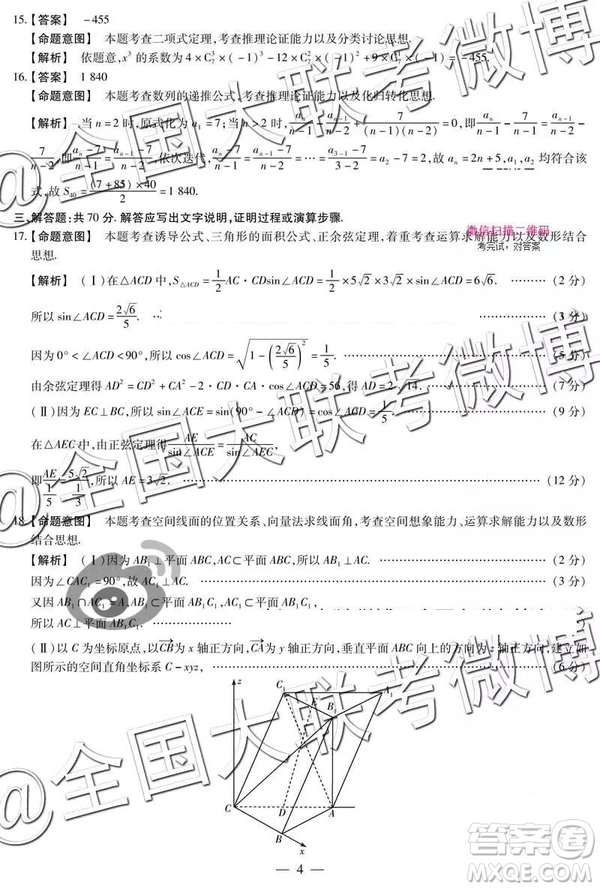 15.【答案】 -455
【命题意图】 本题考查二项式定理,考查推理论证能力以及分类讨论思想.
【解析】 依题意,x³ 的系数为 4×C₇³×(-1)³-12×C₇²×(-1)²+9×C₇¹×(-1)¹=-455.
16.【答案】 1 840
【命题意图】 本题考查数列的递推公式,考查推理论证能力以及化归转化思想.
【解析】 当 n=2 时,原式化为 a₁=7;当 n≥3 时,
式,故 S₄₀=(7+85)×40/2=1 840.
三、解答题:共 70 分. 解答应写出文字说明,证明过程或演算步骤.
微信扫描二维码
考完试,对答案
17.【命题意图】 本题考查诱导公式、三角形的面积公式、正余弦定理,着重考查运算求解能力以及数形结合
思想.
【解析】 (Ⅰ)在△ACD 中,S△ACD=1/2 AC·CDsin∠ACD=1/2×5√2×3√2×sin∠ACD=6√6. (2 分)
所以 sin∠ACD=2√6/5. (3 分)
因为 0°<∠ACD<90°,所以 cos∠ACD=√(1-(2√6/5)²)=1/5. (5 分)
由余弦定理得 AD²=CD²+CA²-2·CD·CA·cos∠ACD=56,得 AD=2√14. (7 分)
(Ⅱ)因为 EC⊥BC,所以 sin∠ACE=sin(90°-∠ACD)=cos∠ACD=1/5. (9 分)
在△AEC 中,由正弦定理得 AE/sin∠ACE=AC/sin∠AEC,
所以 AE=3√2. (12 分)
18.【命题意图】 本题考查空间线面的位置关系、向量法求线面角,考查空间想象能力、运算求解能力以及数形
结合思想.
【解析】 (Ⅰ)因为 AB₁⊥平面 ABC,AC⊂平面 ABC,所以 AB₁⊥AC. (2 分)
因为∠CAC₁=90°,故 AC₁⊥AC. (3 分)
又因 AB₁∩AC₁=A,AB₁⊂平面 AB₁C₁,AC₁⊂平面 AB₁C₁,
所以 AC⊥平面 AB₁C₁.
(Ⅱ)以 C 为坐标原点,以CB为 x 轴正方向,CA为 y 轴正方向,垂直平面 ABC 向上的方向为 z 轴正方向,建立如
图所示的空间直角坐标系 C-xyz, (6 分)
z
C₁
A₁
B₁
C
D
A
B
x
4
@全国大联考微博
答案圈
MXQE.COM